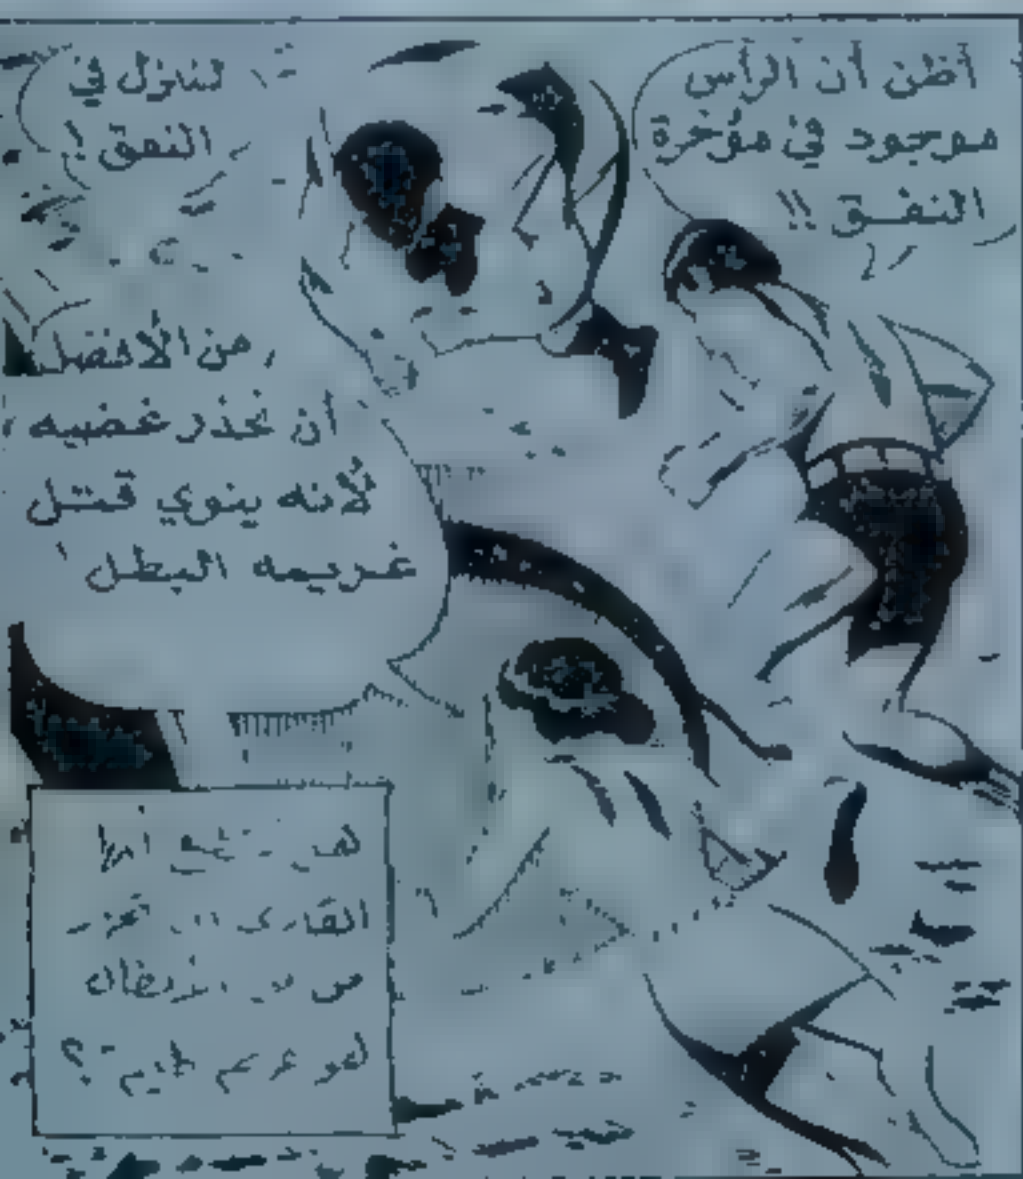 أظن أن الرأس
موجود في مؤخرة
النفــق !!
لننزل في
النفق !
من الأفضل
أن نحذر غضبه
لأنه ينوي قتــل
غـريـمه البطـل
هل
القارئ
من
هو غريم ؟